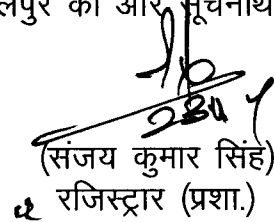 की ओर सूचनार्थ
(संजय कुमार सिंह)
रजिस्ट्रार (प्रशा.)